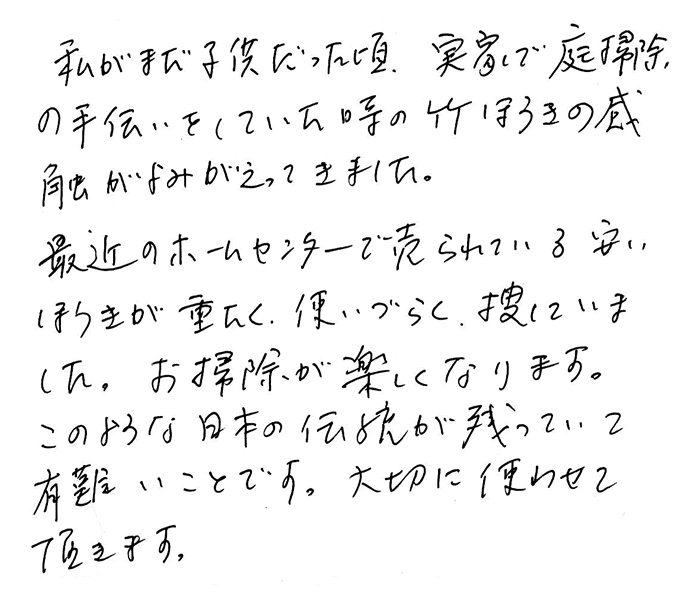 私がまだ子供だった頃、実家で庭掃除
の手伝いをしていた時の竹ぼうきの感
触がよみがえってきました。
最近のホームセンターで売られている安い
ほうきが重たく、使いづらく、捜していま
した。お掃除が楽しくなります。
このような日本の伝統が残っていて
有難いことです。大切に使わせて
頂きます。